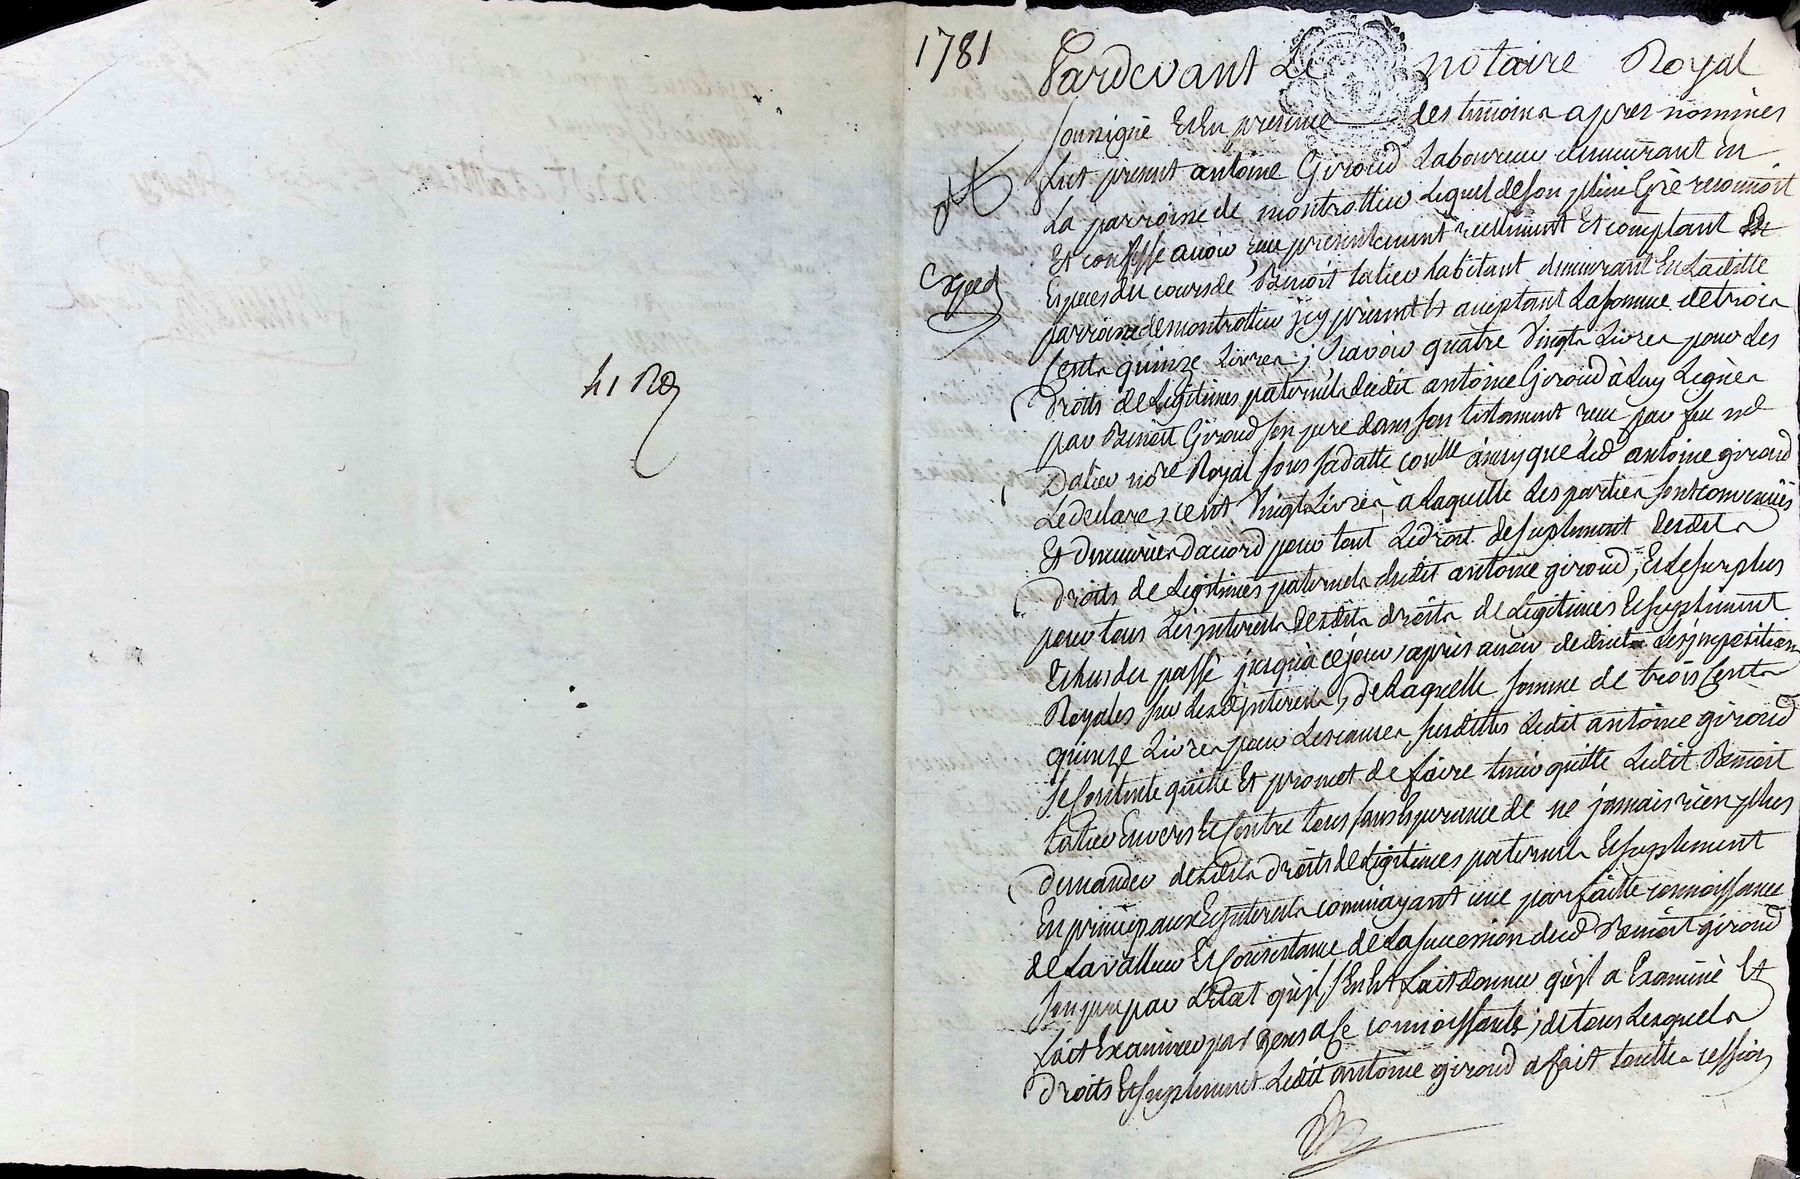 1781
Pardevant Le notaire Royal
soussigné Et En presence des temoins apres nommés
fut present antoine Giroud Laboureur demeurant en
La parroisse de montrottier Lequel de son plein Gré reconnoit
Et confesse avoir reçu presentement réellement Et comptant
Exped
Especes du cours de Benoit habitant demeurant En Laditte
parroisse de montrottier jcy present Et aceptant La somme de trois
Cents quinze Livres, sçavoir quatre Vingts Livres pour Les
41 Rd
Droits de Legitimes paternels dudit antoine Giroud à Luy Legués
par Benoit Giroud son pere dans son testament reçu par feu me
Dalier no.re Royal sous sa datte controllé ainsy que led antoine giroud
Le declare, cent Vingt Livres à Laquelle Les parties sont convenües
Et demeurées d'acord pour tout Le droit de suplement desdits
Droits de Legitimes paternels dudit antoine giroud, Et Le surplus
pour tous Les jnterests desdits droits de Legitimes Et suplement
Echus du passé jusqu'a ce jour, apres avoir deduit Les jmpositions
Royales sur Lesd jnterests, de Laquelle somme de trois Cents
quinze Livres pour Les causes susdittes Ledit antoine giroud
se Contente quitte Et promet de faire tenir quitte Ledit Benoit
Envers Et Contre tous sans Esperance de ne jamais rien plus
demander desdits Droits de Legitimes paternels Et suplement
En principaux Et jnterests comme ayant une parfaitte connoissance
de La valleur Et Consistance de La succession dud Benoit giroud
son pere par L'Etat qu'jl s'En Est fait donner qu'jl a Examiné Et
fait Examiner par gens a ce connoissants; de tous Lesquels
Droits Et suplement Ledit antoine giroud a fait touttes cession